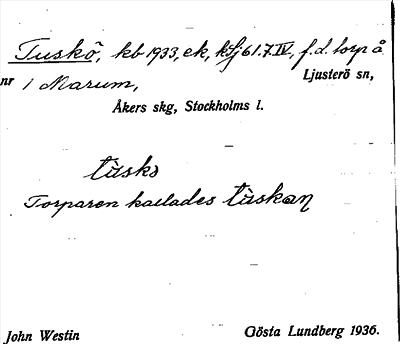 Tuskö, kb 1933, ek, ksfj 61.7.IV, f.d. torp å
nr 1 Marum, Ljusterö sn,
Åkers skg, Stockholms l.
tùskə
Torparen kallades tùskan
John Westin Gösta Lundberg 1936.